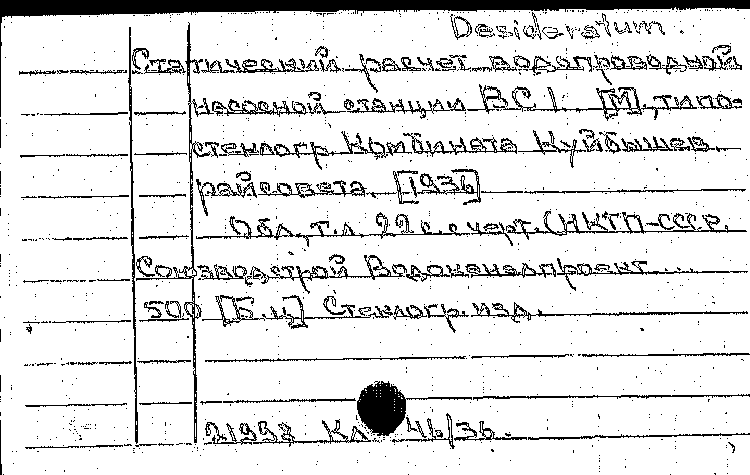 Desideratum.
Статический расчет водопроводной
насосной станции ВС I. [М], типо-
стеклогр. Комбината Куйбышев.
райсовета. [1936]
Обл., т.л. 22 с. с черт. (НКТП-СССР.
Союзводстрой Водоканалпроект....
500 [Б.ц] Стеклогр. изд.
21998 Кл 46/36.